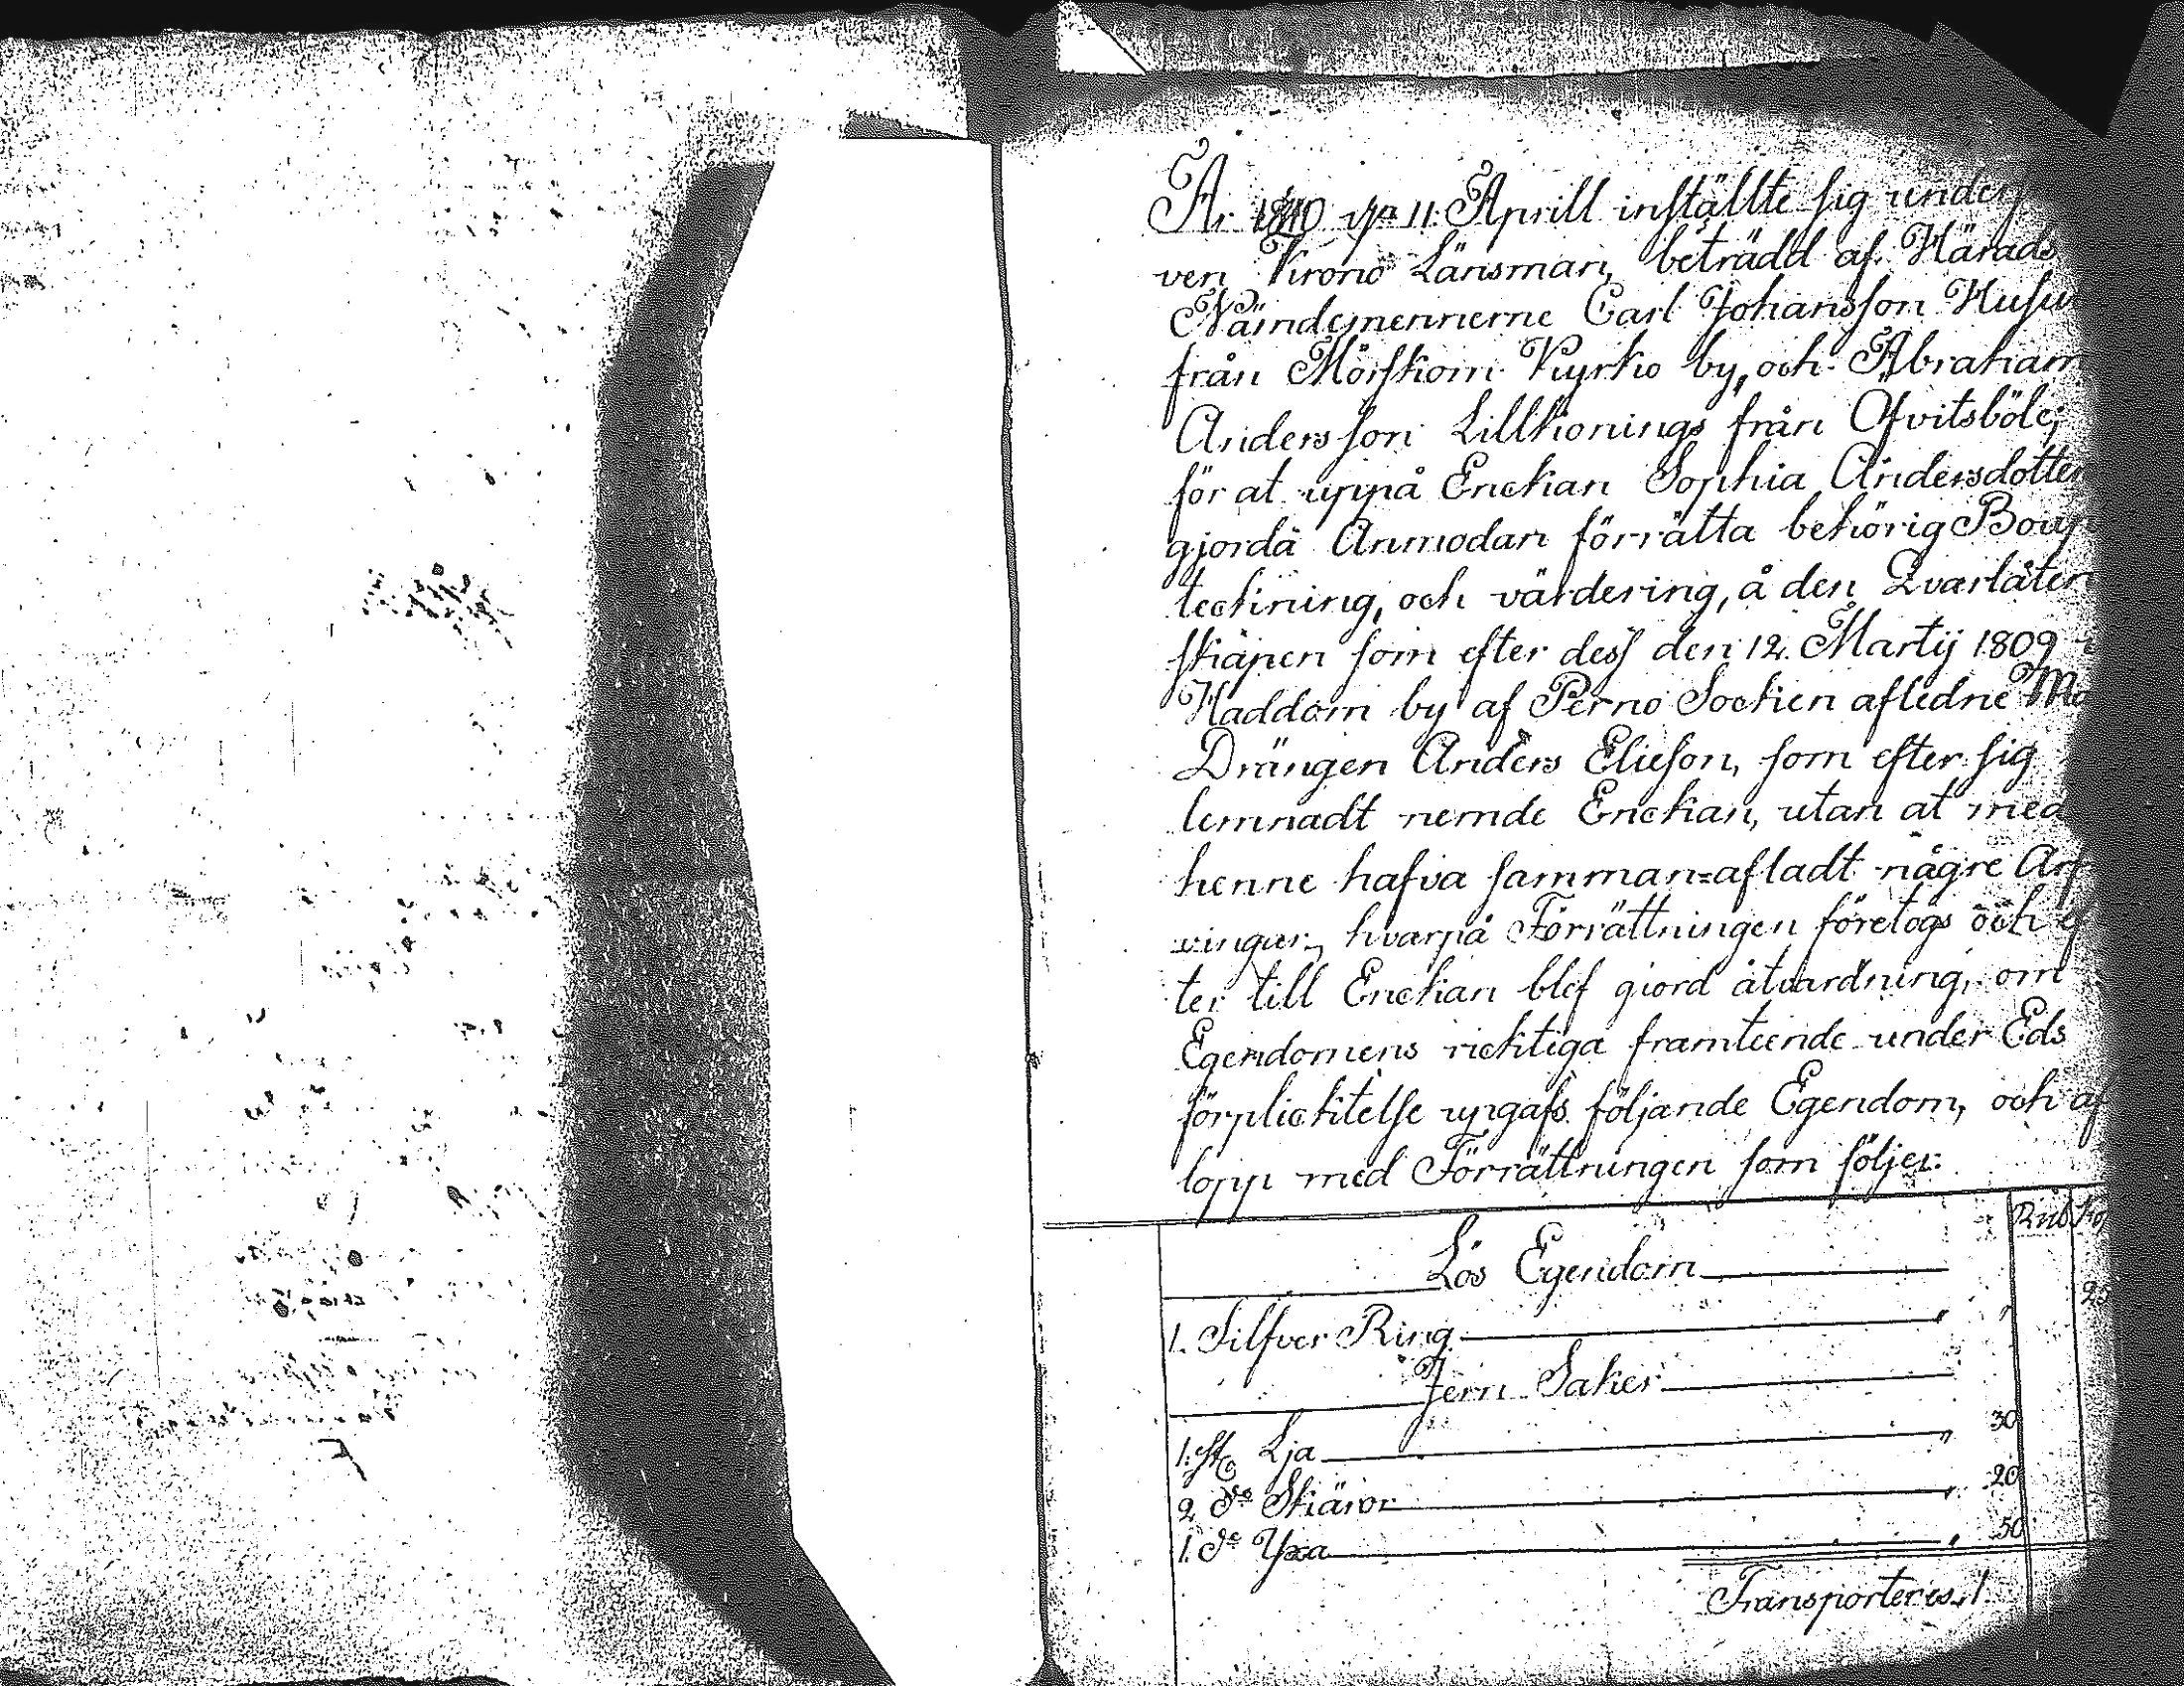 År 1810 d. 11. Aprill inställte sig under
ven Krono Länsman, beträdd af Härads
Nämndemennerne Carl Johansson Husu
från Mörskom Kyrko by, och Abraham
Andersson Lillkonings från Ofvitsböle,
för at uppå Enckan Sophia Andersdotter
gjorda Anmodan förrätta behörig Boup
teckning, och värdering, å den Qvarlåten
skapen som efter dess den 12. Martij 1809
Haddom by af Perno Sockn afledne
Drängen Anders Elieson, som efter sig
lemnadt nemde Enckan, utan at med
henne hafva samman=afladt någre Arf
vingar, hvarpå Förrättningen företogs och ef
ter till Enckan blef giord åtvardning, om
Egendomens richtiga framteende under Eds
förplichtelse upgafs följande Egendom, och af
lopp med Förrättningen som följer:
Rub Ko
Lös Egendom
1. Silfver Ring " "
Jern Saker
1. st Lja " 30
2 do Skäror " 20
1. do Yxa " 50
Transporteras